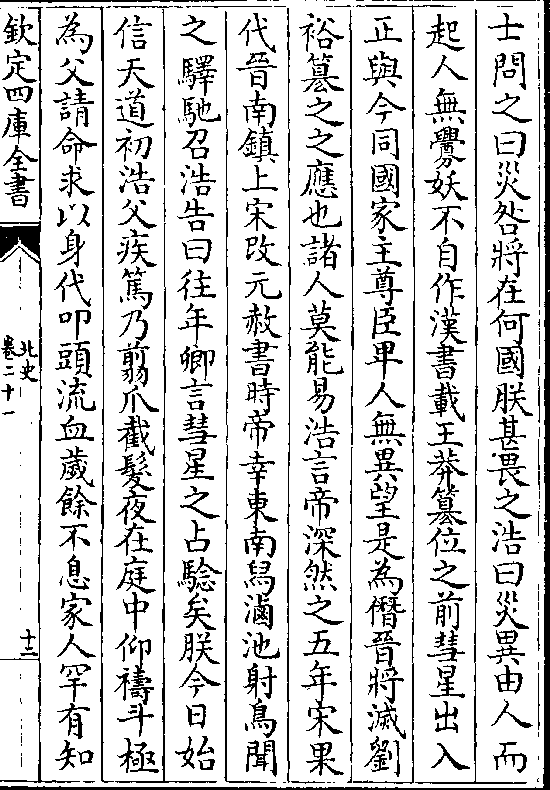 士問之曰災咎將在何國朕甚畏之浩曰災異由人而
起人無釁妖不自作漢書載王莽簒位之前彗星出入
正與今同國家主尊臣卑人無異望是為僭晉將滅劉
裕簒之之應也諸人莫能易浩言帝深然之五年宋果
代晉南鎮上宋改元赦書時帝幸東南舄滷池射鳥聞
之驛馳召浩告曰往年卿言彗星之占驗矣朕今日始
信天道初浩父疾篤乃翦爪截髮夜在庭中仰禱斗極
為父請命求以身代叩頭流血歲餘不息家人罕有知
欽定四庫全書
北史
卷二十一
十二